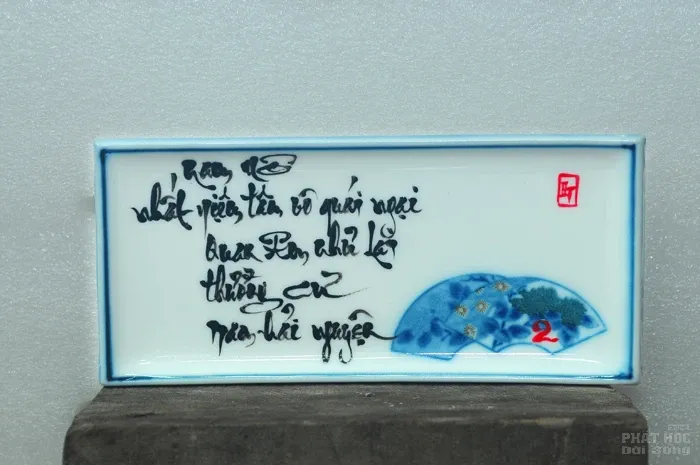 nam mô
nhất niệm tâm vô quái ngại
Quan Âm như Lai
thường cư
nam hải nguyện
2
PHẬT HỌC
Đời Sống